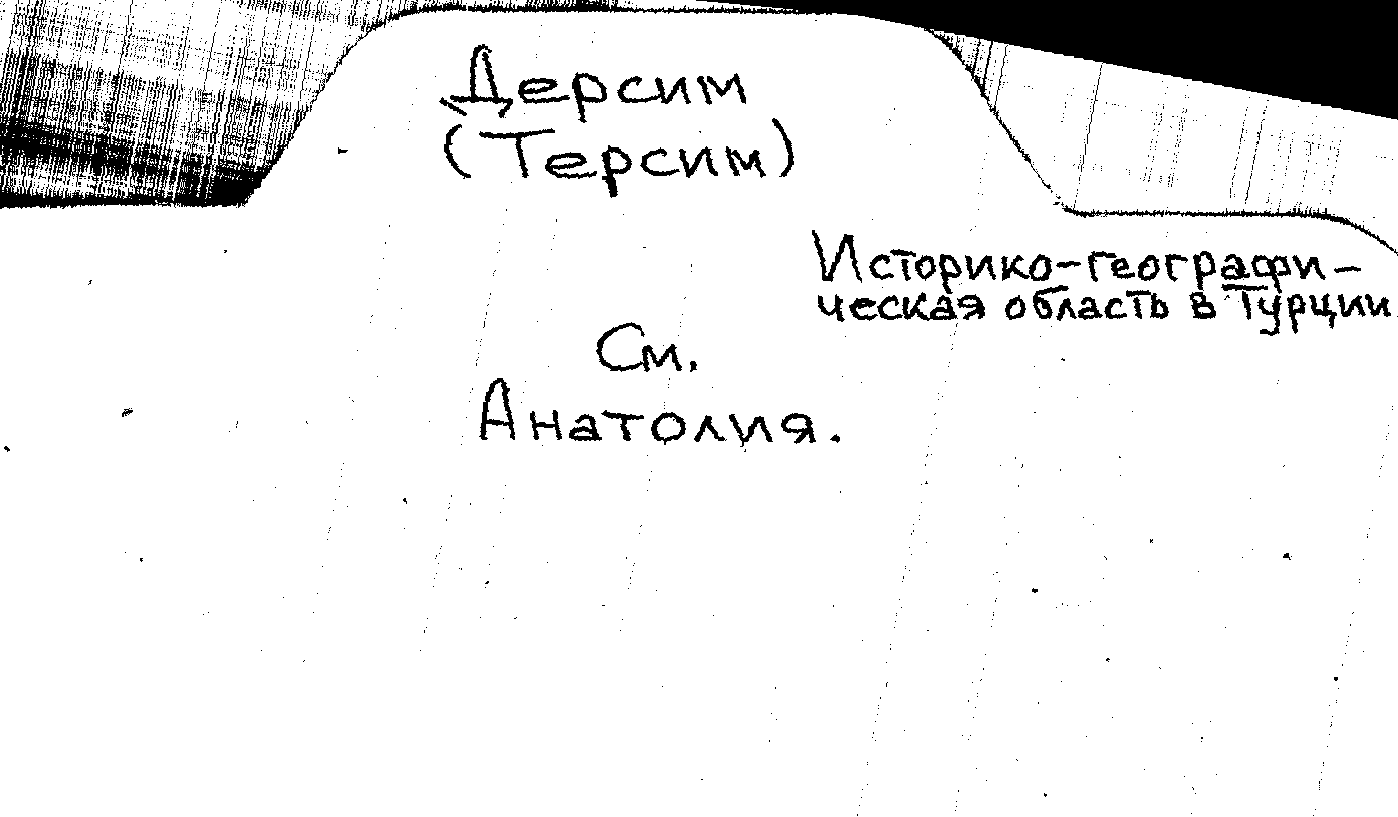 Дерсим
(Терсим)
Историко-географи-
ческая область в Турции
См.
Анатолия.